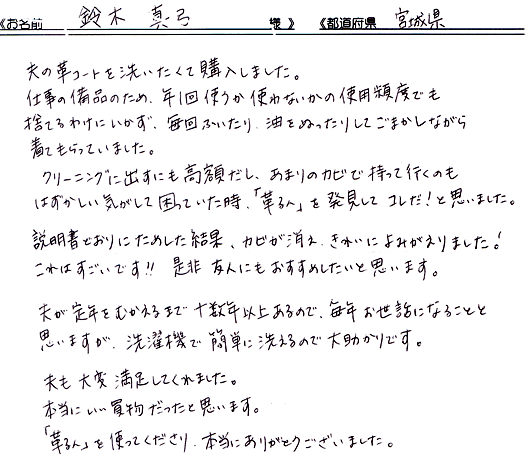 《お名前 鈴木 真弓 様》 《都道府県 宮城県
夫の革コートを洗いたくて購入しました。
仕事の備品のため、年1回使うか使わないかの使用頻度でも
捨てるわけにいかず、毎回ふいたり、油をぬったりしてごまかしながら
着てもらっていました。
クリーニングに出すにも高額だし、あまりのカビで持って行くのも
はずかしい気がして困っていた時、「革るん」を発見してコレだ!と思いました。
説明書どおりにためした結果、カビが消え、きれいによみがえりました!
これはすごいです!! 是非友人にもおすすめしたいと思います。
夫が定年をむかえるまで十数年以上あるので、毎年お世話になることと
思いますが、洗濯機で簡単に洗えるので大助かりです。
夫も大変満足してくれました。
本当にいい買物だったと思います。
「革るん」を使ってくださり、本当にありがとうございました。